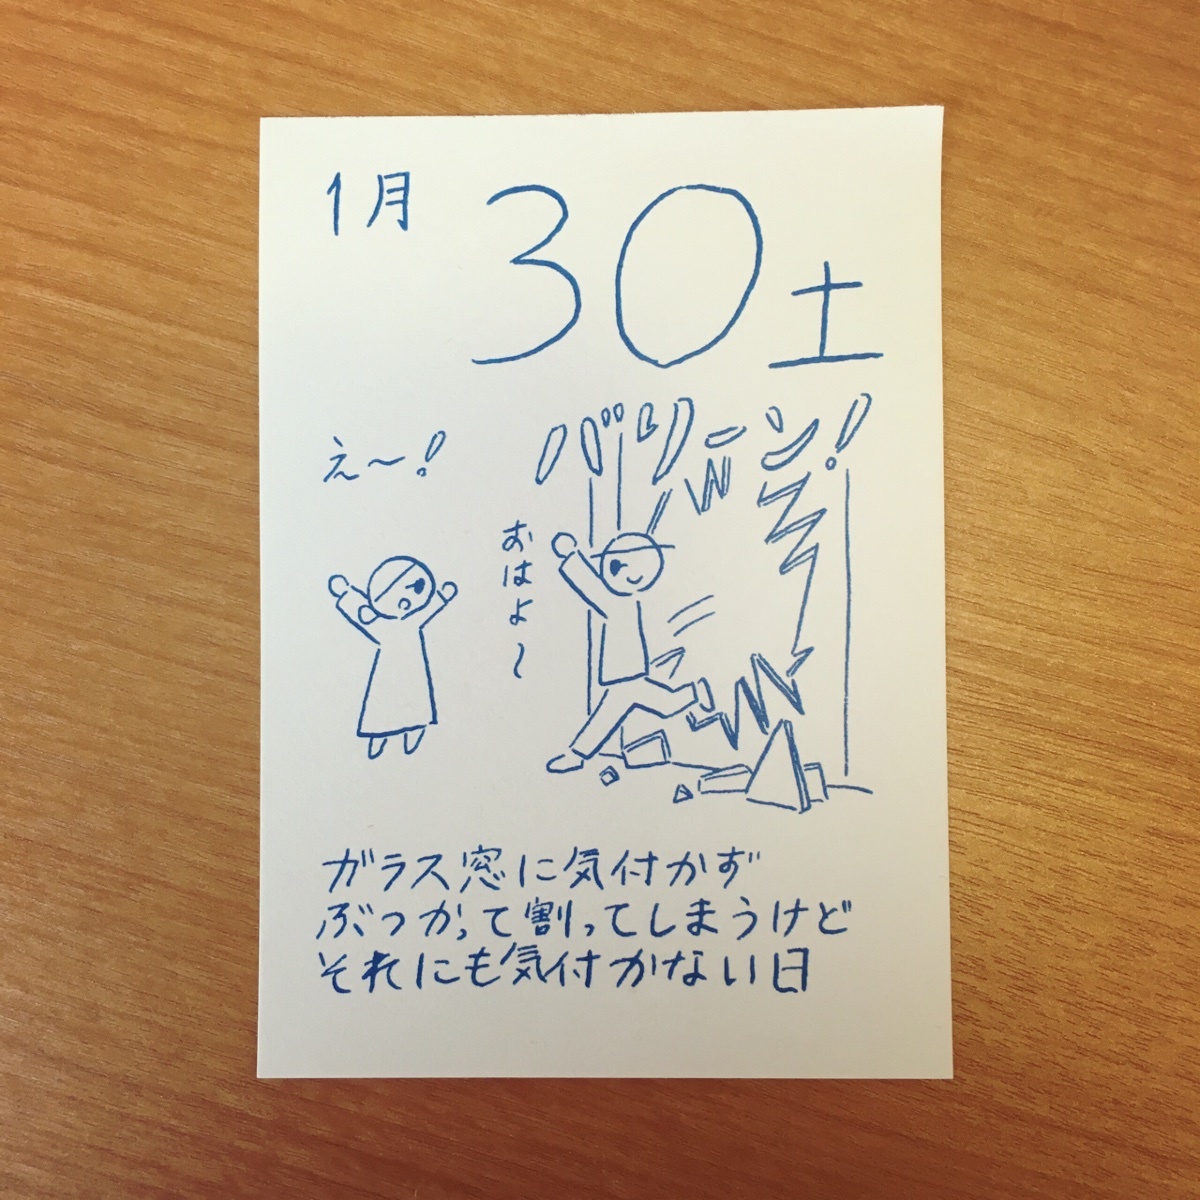 1月
30 土
え〜!
バリーン!
おはよ〜
ガラス窓に気付かず
ぶつかって割ってしまうけど
それにも気付かない日